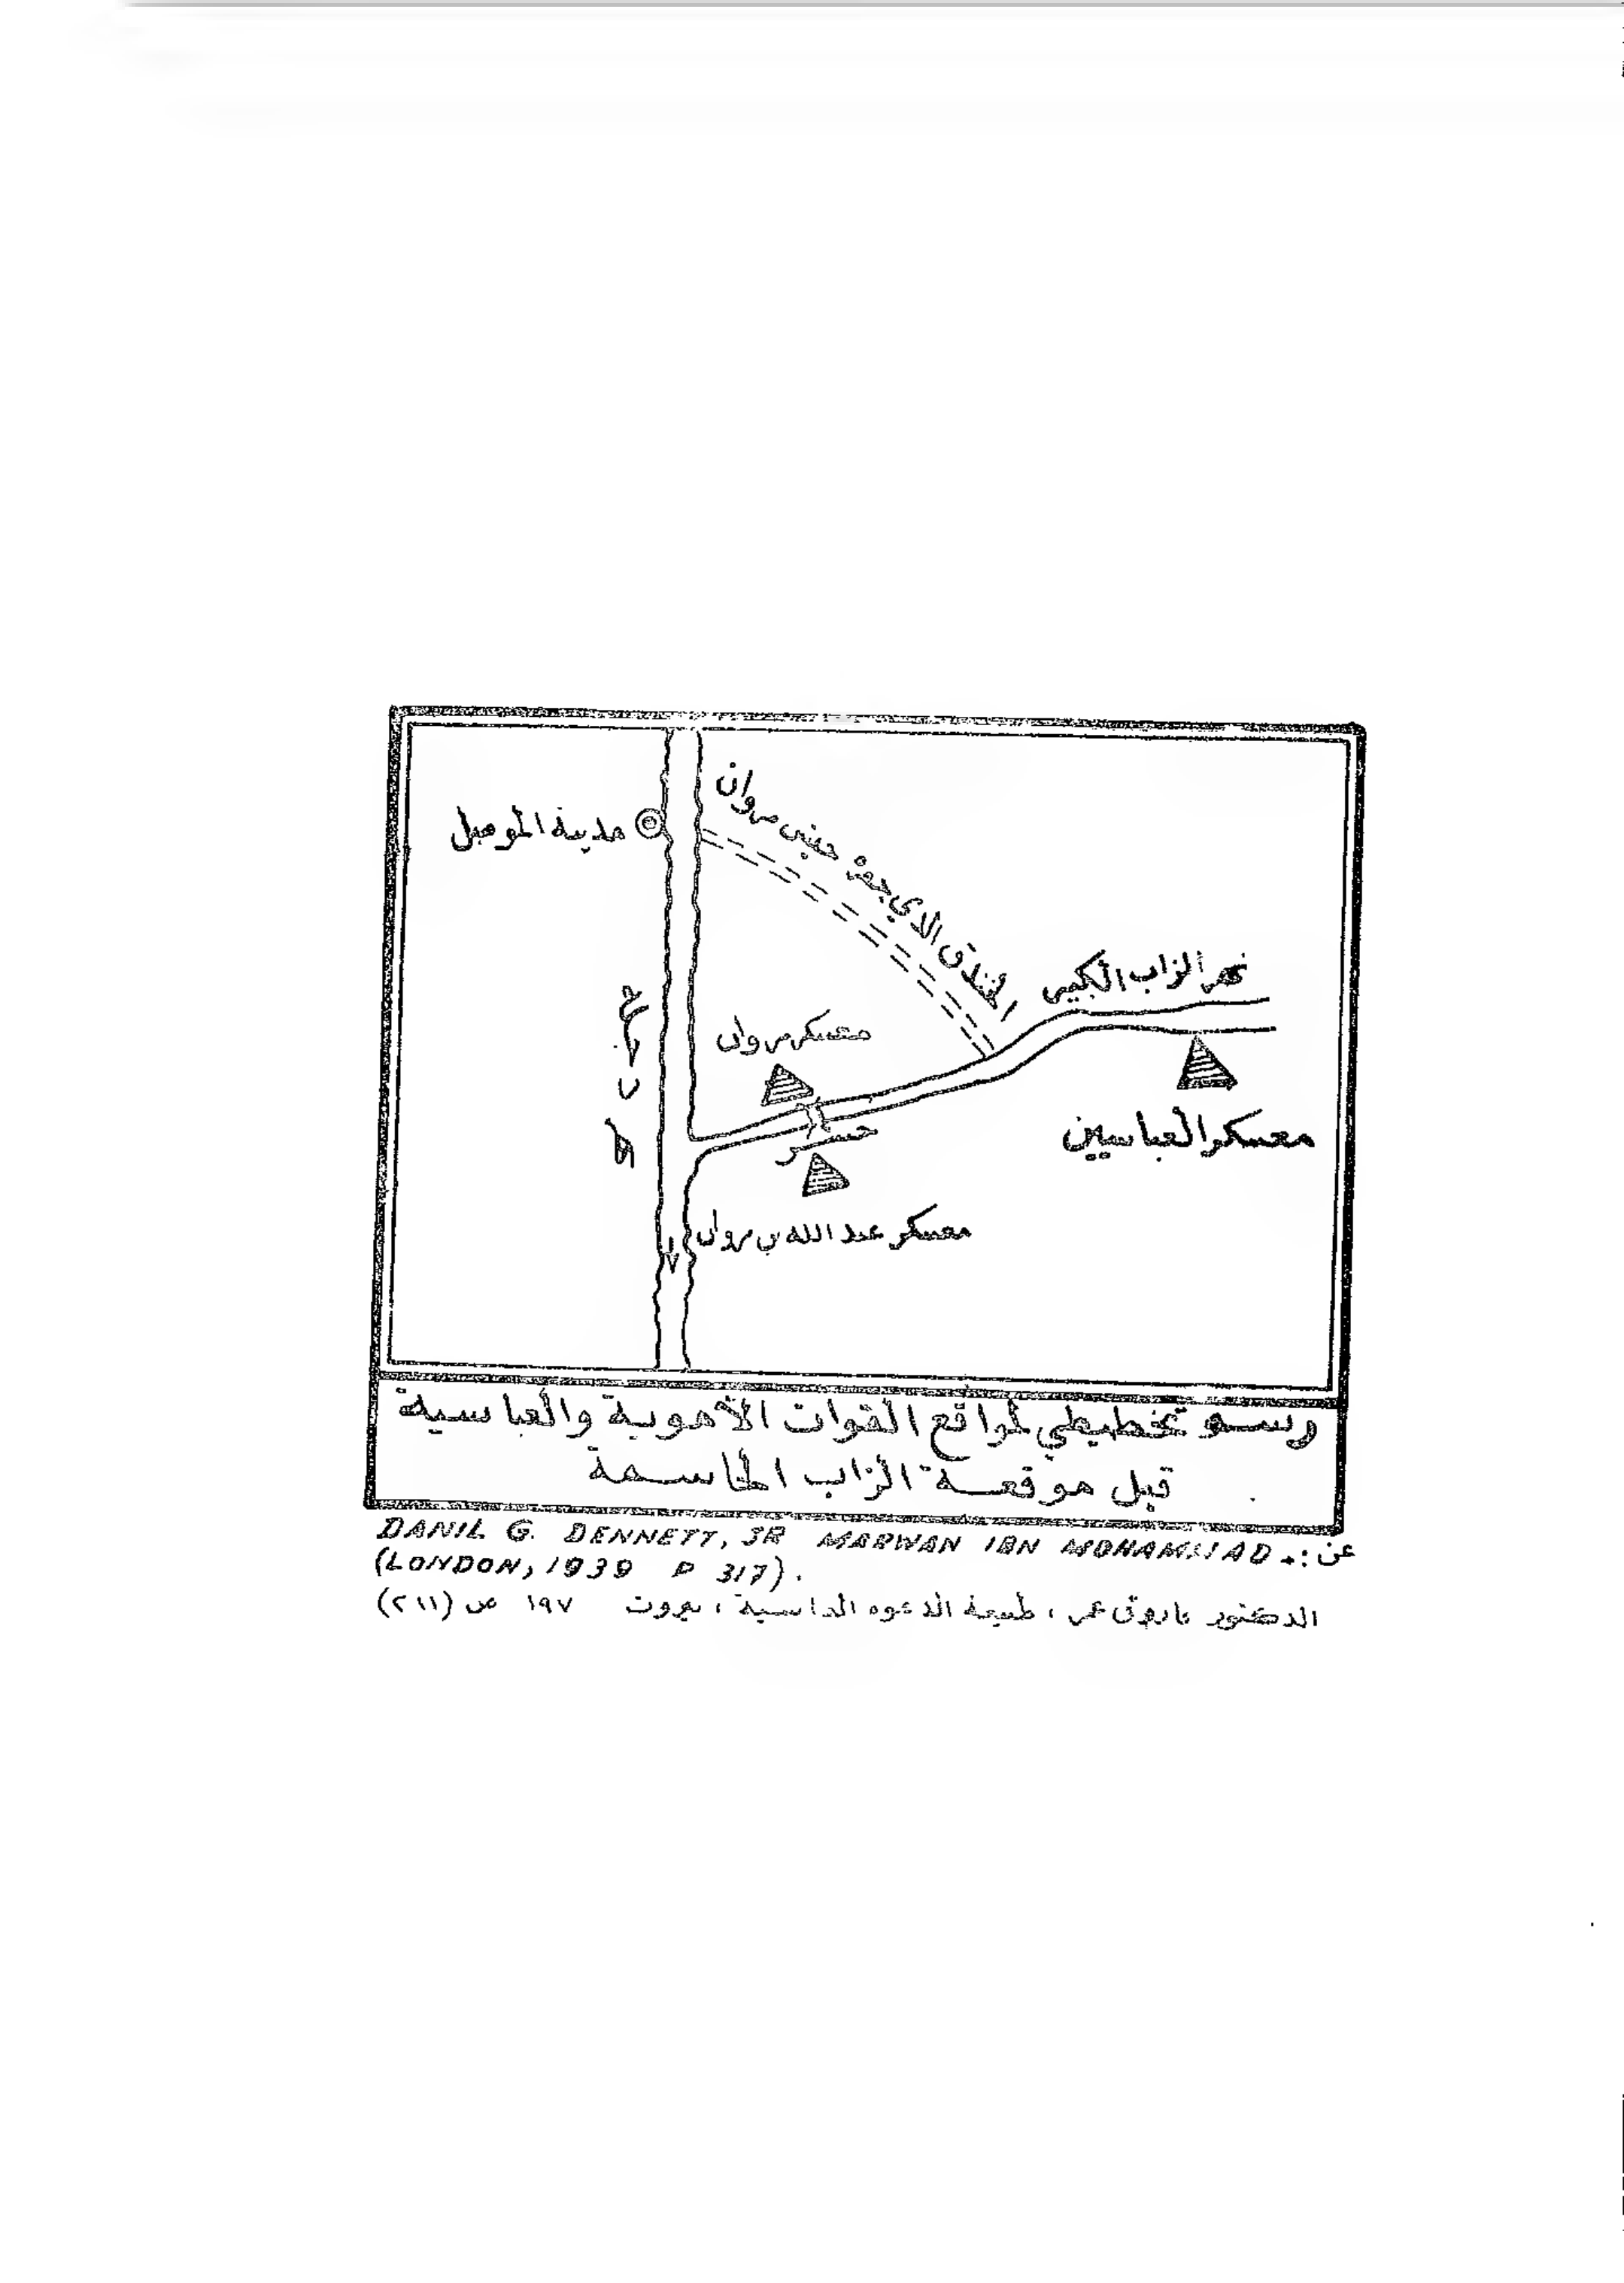 مدينة الموصل
الخندق الذي حفره جيش مروان
نهر الزاب الكبير
معسكر مروان
جسر
معسكر العباسيين
معسكر عبد الله بن مروان
رسم تخطيطي لمواقع القوات الأموية والعباسية
قبل موقعة الزاب الحاسمة
عن :- DANIL G. DENNETT, JR MARWAN IBN MOHAMMAD
(LONDON, 1939 P 317).
الدكتور فاروق عمر ، طبيعة الدعوه العباسية ، بيروت ١٩٧ ص (٢١١)